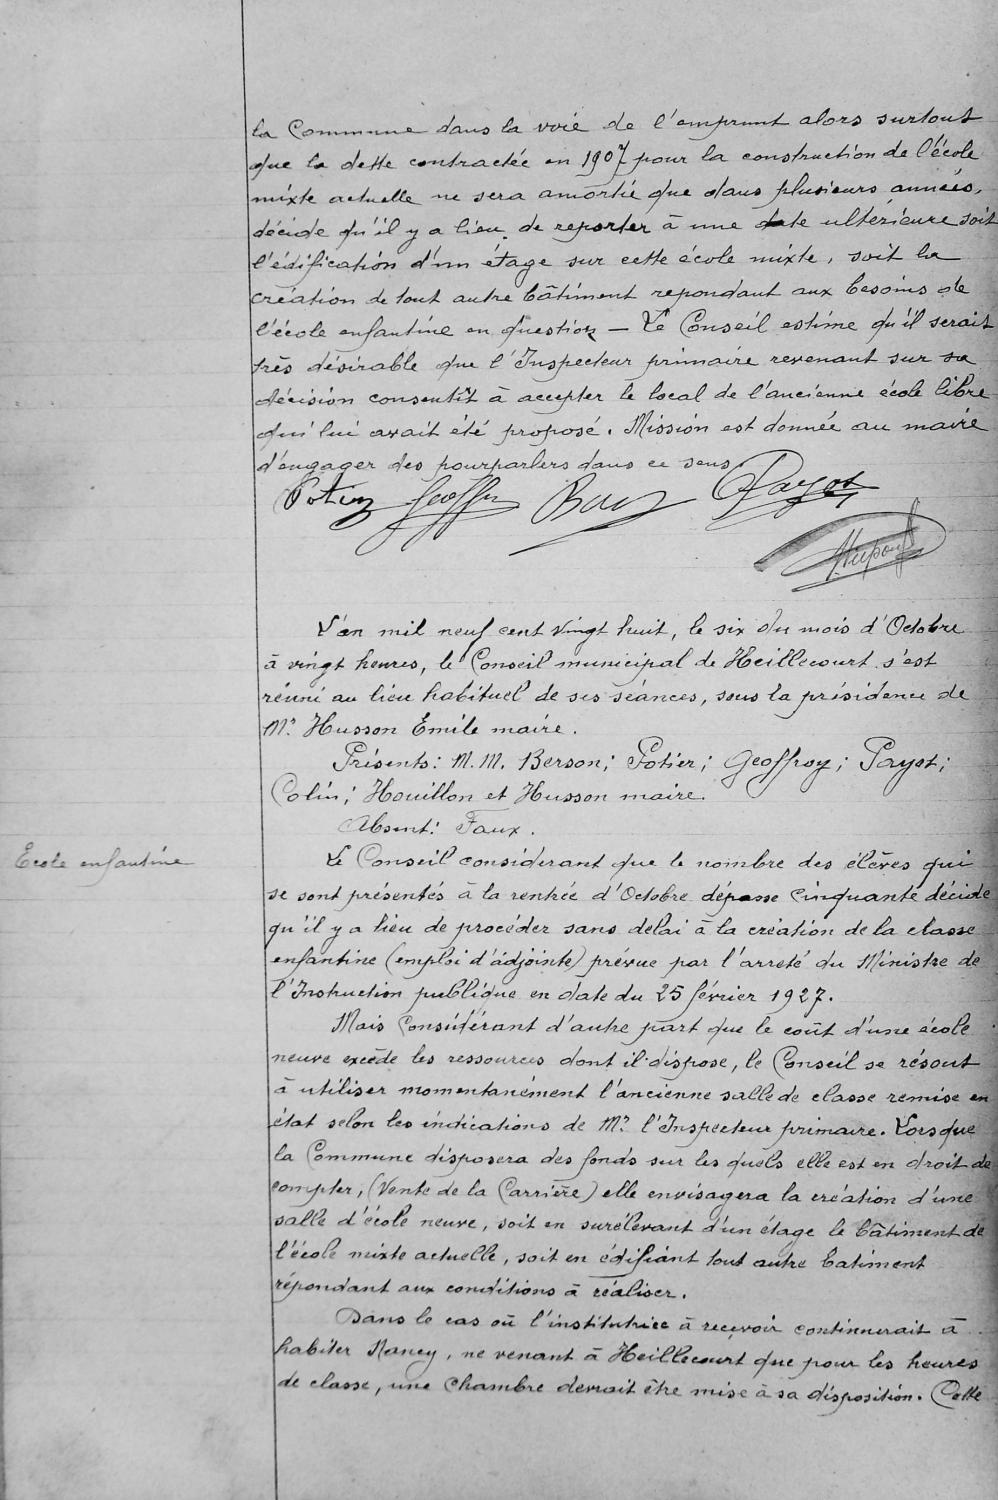 la Commune dans la voie de l'emprunt alors surtout
que la dette contractée en 1907 pour la construction de l'école
mixte actuelle ne sera amortie que dans plusieurs années,
décide qu'il y a lieu de reporter à une date ultérieure soit
l'édification d'un étage sur cette école mixte, soit la
création de tout autre bâtiment repondant aux besoins de
l'école enfantine en question — Le Conseil estime qu'il serait
très désirable que l'Inspecteur primaire revenant sur sa
décision consentît à accepter le local de l'ancienne école libre
qui lui avait été proposé. Mission est donnée au maire
d'engager des pourparlers dans ce sens.
Potier Geoffroy Payot
L'an mil neuf cent vingt huit, le six du mois d'Octobre
à vingt heures, le Conseil municipal de Heillecourt s'est
réuni au lieu habituel de ses séances, sous la présidence de
Mr Husson Emile maire.
Présents: M.M. Berson; Potier; Geoffroy; Payot;
Colin; Houillon et Husson maire.
Absent: Faux.
Ecole enfantine
Le Conseil considérant que le nombre des élèves qui
se sont présentés à la rentrée d'Octobre dépasse cinquante décide
qu'il y a lieu de procéder sans délai à la création de la classe
enfantine (emploi d'adjointe) prévue par l'arreté du Ministre de
l'Instruction publique en date du 25 février 1927.
Mais considérant d'autre part que le coût d'une école
neuve excède les ressources dont il dispose, le Conseil se résout
à utiliser momentanément l'ancienne salle de classe remise en
état selon les indications de Mr l'Inspecteur primaire. Lorsque
la Commune disposera des fonds sur les quels elle est en droit de
compter, (Vente de la Carrière) elle envisagera la création d'une
salle d'école neuve, soit en surélevant d'un étage le bâtiment de
l'école mixte actuelle, soit en édifiant tout autre batiment
répondant aux conditions à réaliser.
Dans le cas où l'institutrice à recevoir continuerait à
habiter Nancy, ne venant à Heillecourt que pour les heures
de classe, une chambre devrait être mise à sa disposition. Cette